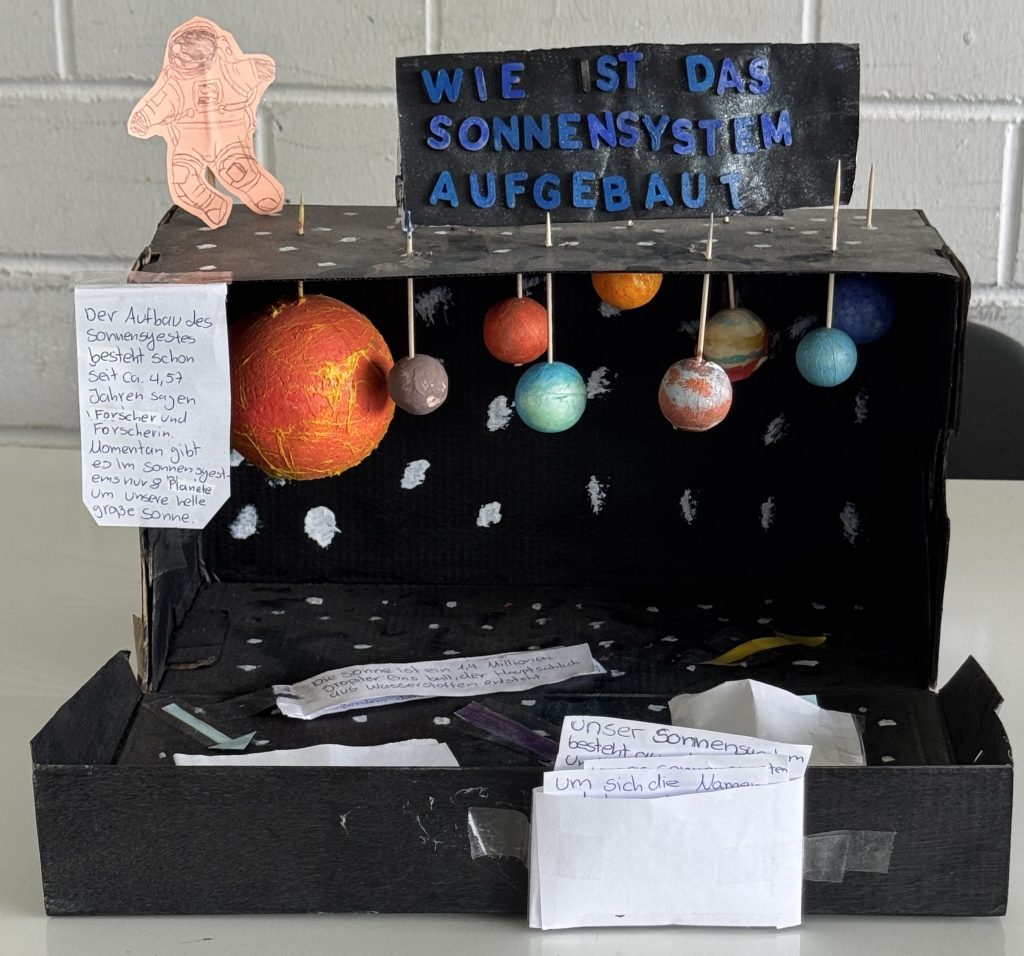 WIE IST DAS
SONNENSYSTEM
AUFGEBAUT
Der Aufbau des
Sonnensyestes
besteht schon
seit ca. 4,57
Jahren sagen
Forscher und
Forscherin.
Momentan gibt
es im Sonnensyest-
ems nur 8 Planete
um unsere helle
große Sonne.
Die Sonne ist ein 1,4 Millionen
Großter Gas ball, der Hauptsählich
aus Wasserstoffen entsteht
unser Sonnensystem
besteht
um sich die Namen